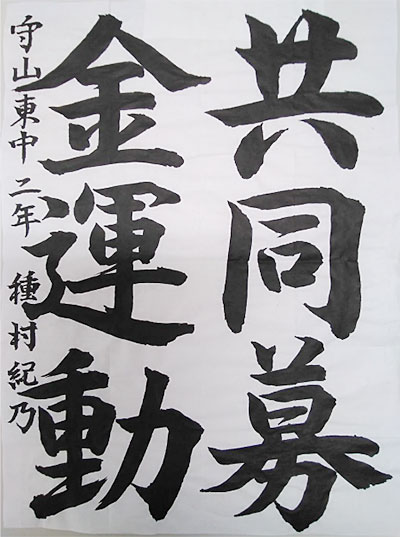 共同募
金運動
守山東中二年 種村紀乃